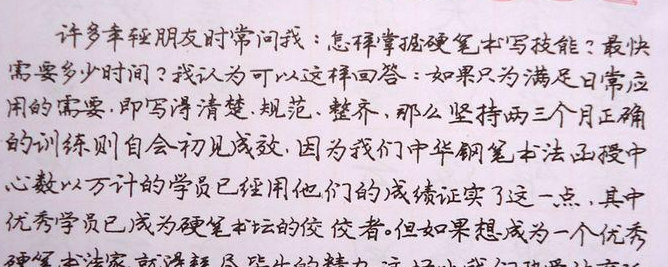 许多年轻朋友时常问我：怎样掌握硬笔书写技能？最快
需要多少时间？我认为可以这样回答：如果只为满足日常应
用的需要，即写得清楚、规范、整齐，那么坚持两三个月正确
的训练则自会初见成效，因为我们中华钢笔书法函授中
心数以万计的学员已经用他们的成绩证实了这一点，其中
优秀学员已成为硬笔书坛的佼佼者。但如果想成为一个优秀
硬笔书法家，就得耗尽毕生的精力